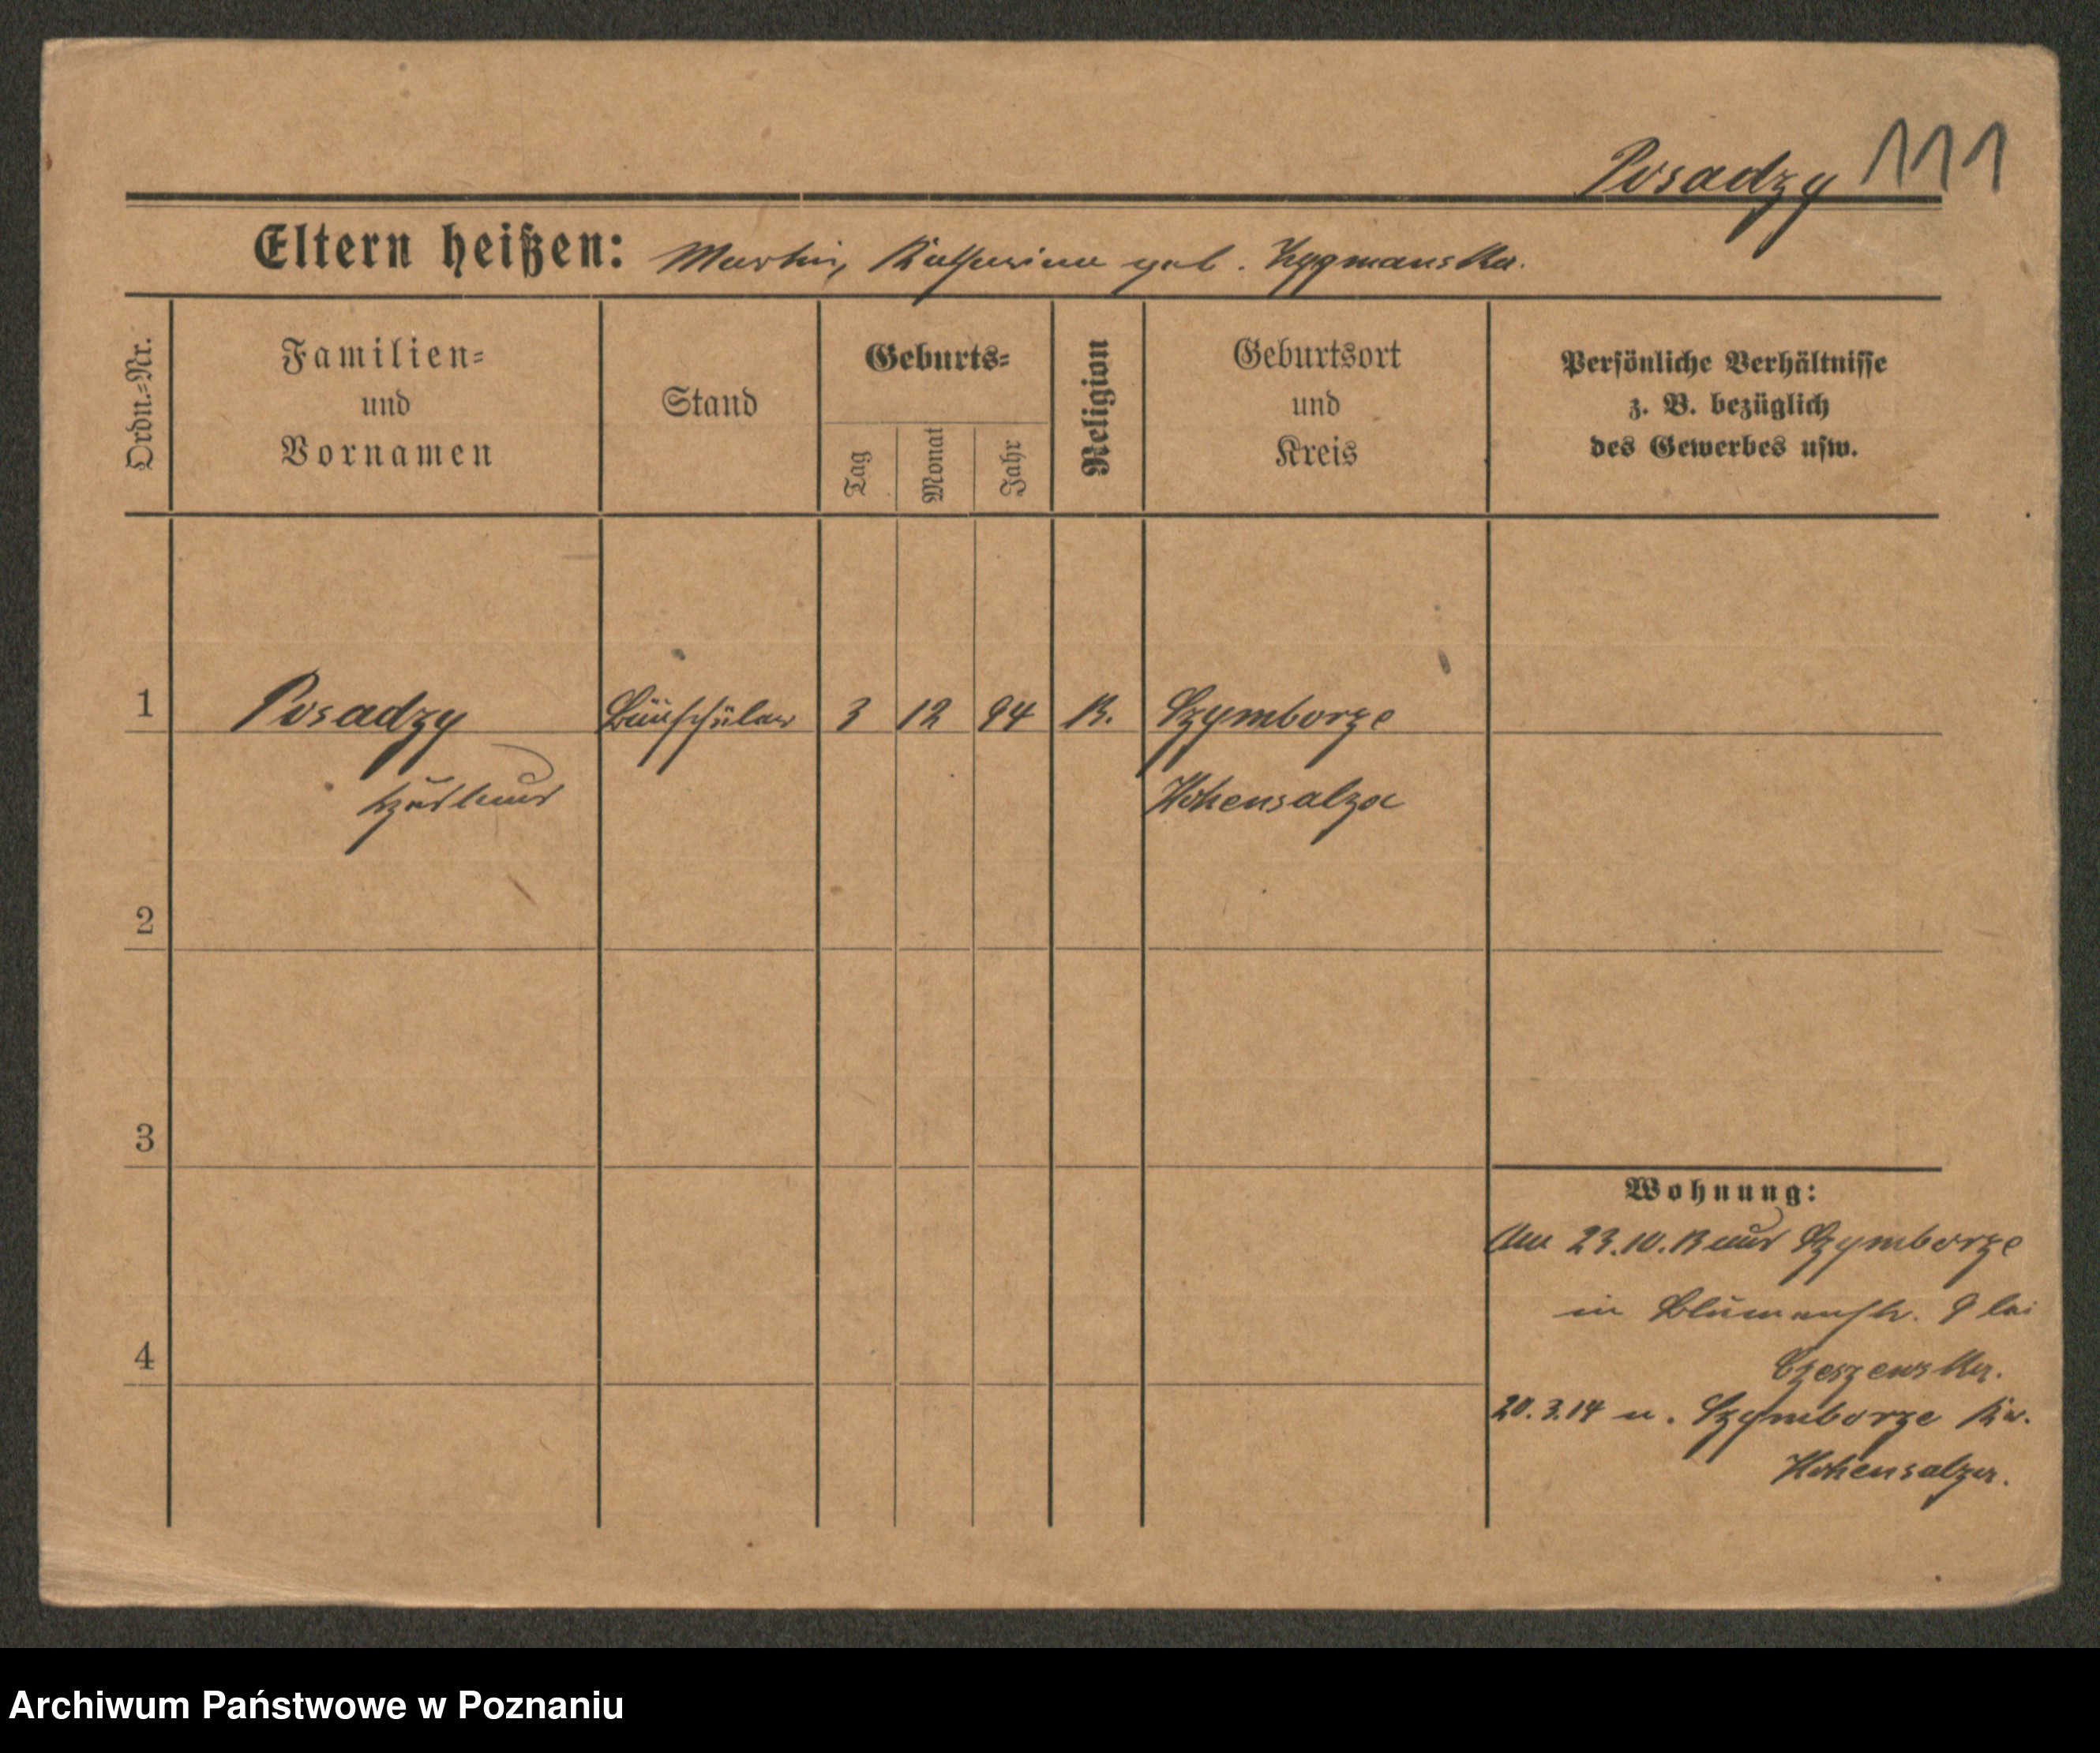 Posadzy 111
Eltern heißen: Martin, Katharina geb. Zygmanska.
Ordn.=Nr.
Familien=
und
Vornamen
Stand
Geburts=
Tag
Monat
Jahr
Religion
Geburtsort
und
Kreis
Persönliche Verhältnisse
z. B. bezüglich
des Gewerbes usw.
1 Posadzy Bauschüler 3 12 94 K. Szymborze
Hohensalza
2
3
4
Wohnung:
Am 23.10.13 aus Szymborze
in Blumenstr. 9 bei
Czeszewska.
20.3.14 n. Szymborze Kr.
Hohensalza.
Archiwum Państwowe w Poznaniu